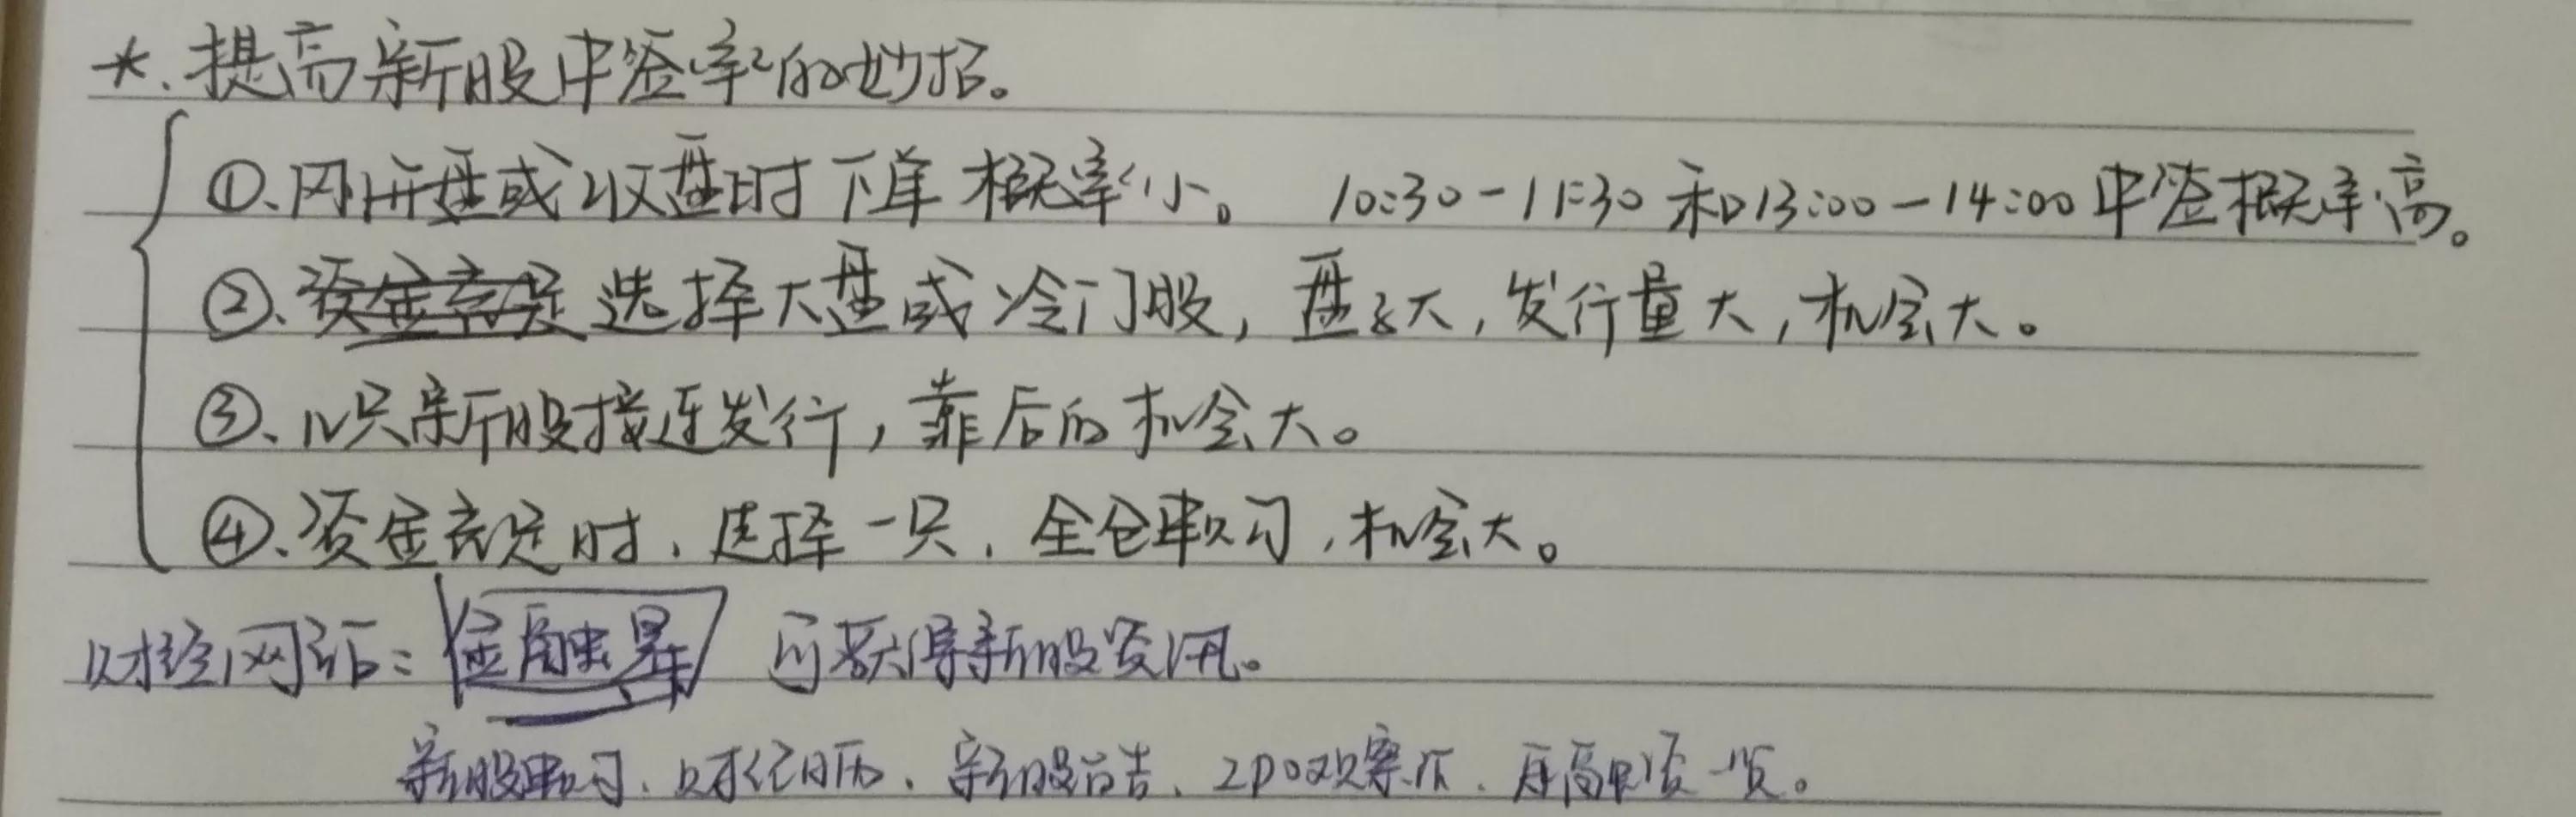 *.提高新股中签率的妙招。
①、刚开盘或收盘时下单概率小。 10:30-11:30和13:00-14:00中签概率高。
②、资金充足选择大盘或冷门股，盘子大，发行量大，机会大。
③、几只新股接连发行，靠后的机会大。
④、资金充足时，选择一只，全仓申购，机会大。
财经网站：金融界 可获得新股资讯。
新股申购、财经日历、新股公告、IPO观察、一览。